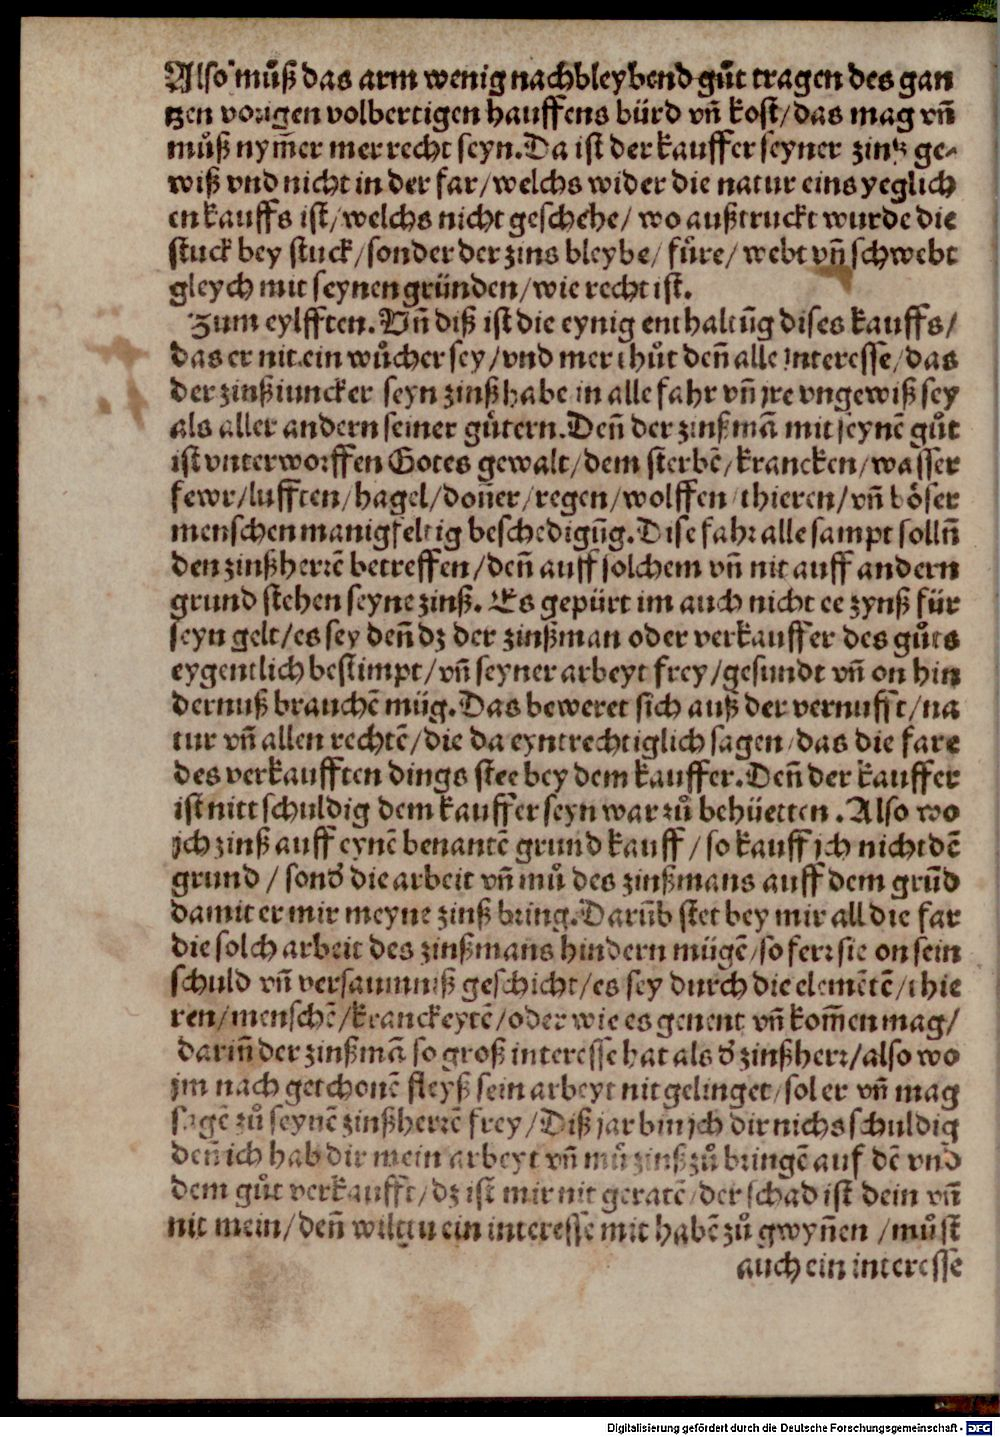 Also muͦß das arm wenig nachbleybend guͦt tragen des gan
tzen vorigen volbertigen hauffens bürd vn̄ kost/das mag vn̄
muͦß nym̄er mer recht seyn. Da ist der kauffer seyner zinß ge-
wiß vnd nicht in der far/welchs wider die natur eins yeglich
en kauffs ist/welchs nicht geschehe/ wo außtruckt wurde die
stuck bey stuck/sonder der zins bleybe/ fuͤre/ webt vn̄ schwebt
gleych mit seynen gründen/wie recht ist.
Zum eylfften. Vn̄ diß ist die eynig enthaltūg dises kauffs/
das er nit ein wuͦcher sey/vnd mer thuͦt den̄ alle Interesse/das
der zinßiuncker seyn zinß habe in alle fahr vn̄ jre vngewiß sey
als aller andern seiner guͤtern. Den̄ der zinßmā mit seynē guͦt
ist vnterworffen Gotes gewalt/dem sterbē/krancken/wasser
fewr/lufften/hagel/don̄er/regen/wolffen/thieren/vn̄ boͤser
menschen manigfeltig beschedigūg. Dise fahr alle sampt solln̄
den zinßherrē betreffen/den̄ auff solchem vn̄ nit auff andern
grund stehen seyne zinß. Es gepürt im auch nicht ee zynß für
seyn gelt/es sey den̄ dz der zinßman oder verkauffer des guͦts
eygentlich bestimpt/vn̄ seyner arbeyt frey/gesundt vn̄ on hin
dernuß brauchē müg. Das beweret sich auß der vernufft/na
tur vn̄ allen rechtē/die da eyntrechtiglich sagen/das die fare
des verkaufften dings stee bey dem kauffer. Den̄ der kauffer
ist nitt schuldig dem kauffer seyn war zuͦ behüetten. Also wo
jch zinß auff eynē benantē grund kauff/ so kauff jch nicht dē
grund/ sonđ die arbeit vn̄ muͦ des zinßmans auff dem grūd
damit er mir meyne zinß bring. Darūb stet bey mir all die far
die solch arbeit des zinßmans hindern mügē/so ferr sie on sein
schuld vn̄ versaumniß geschicht/es sey durch die elemētē/thie
ren/menschē/kranckeytē/oder wie es genent vn̄ kom̄en mag/
darin̄ der zinßmā so groß interesse hat als đ zinßherr/also wo
jm nach getchonē fleyß sein arbeyt nit gelinget/sol er vn̄ mag
sagē zuͦ seynē zinßherrē frey/Diß jar bin jch dir nichs schuldig
den̄ ich hab dir mein arbeyt vn̄ muͦ zinß zuͦ bringē auf dē vnd
dem guͦt verkaufft/dz ist mir nit geratē/der schad ist dein vn̄
nit mein/den̄ wiltu ein interesse mit habē zuͦ gwyn̄en/muͦst
auch ein interesse
Digitalisierung gefördert durch die Deutsche Forschungsgemeinschaft - DFG